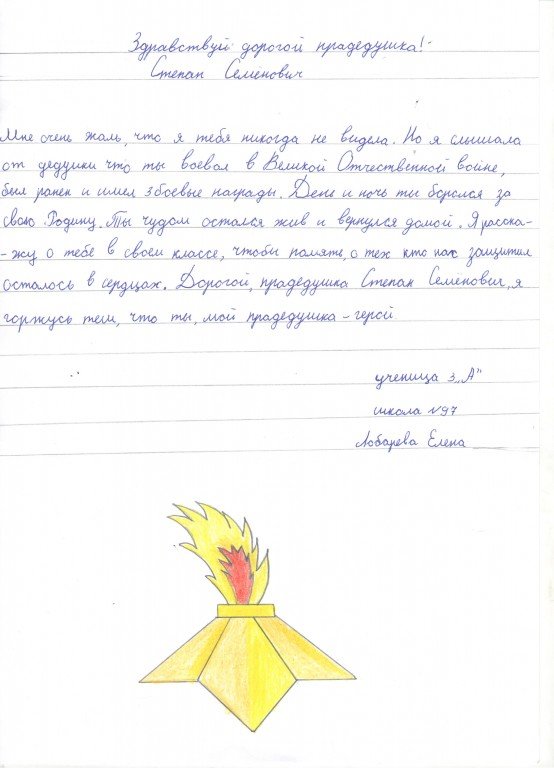 Здравствуй дорогой прадедушка!
Степан Семенович
Мне очень жаль, что я тебя никогда не видела. Но я слышала
от дедушки что ты воевал в Великой Отчественной войне,
был ранен и имел 3 боевые награды. День и ночь ты боролся за
свою Родину. Ты чудом остался жив и вернулся домой. Я расска-
-жу о тебе в своем классе, чтобы память, о тех кто нас защитил
осталось в сердцах. Дорогой, прадедушка Степан Семенович, я
горжусь тем, что ты, мой прадедушка - герой
ученица 3 „А"
школа №97
Лобарева Елена